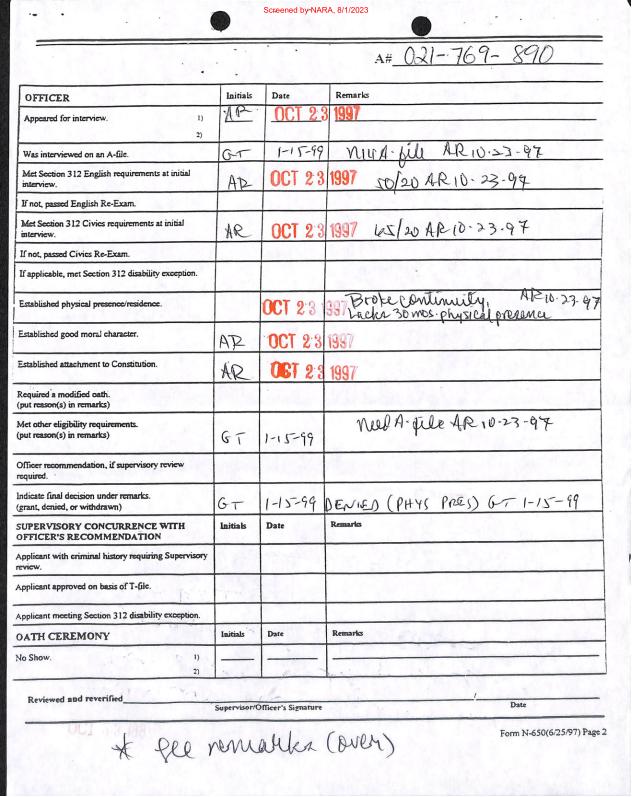 Screened by NARA, 8/1/2023
A# 021-769-890
OFFICER Initials Date Remarks
Appeared for interview. 1) AR OCT 23 1997
2)
Was interviewed on an A-file. GT 1-15-99 A-file AR 10-23-97
Met Section 312 English requirements at initial interview. AR OCT 23 1997 50/20 AR 10-23-97
If not, passed English Re-Exam.
Met Section 312 Civics requirements at initial interview. AR OCT 23 1997 65/20 AR 10-23-97
If not, passed Civics Re-Exam.
If applicable, met Section 312 disability exception.
Established physical presence/residence. OCT 23 1997 Broke continuity, AR 10-23-97
Lacks 30 mos. physical presence
Established good moral character. AR OCT 23 1997
Established attachment to Constitution. AR OCT 23 1997
Required a modified oath.
(put reason(s) in remarks)
Met other eligibility requirements. Need A-file AR 10-23-97
(put reason(s) in remarks) GT 1-15-99
Officer recommendation, if supervisory review
required.
Indicate final decision under remarks.
(grant, denied, or withdrawn) GT 1-15-99 DENIED (PHYS PRES) GT 1-15-99
SUPERVISORY CONCURRENCE WITH Initials Date Remarks
OFFICER'S RECOMMENDATION
Applicant with criminal history requiring Supervisory
review.
Applicant approved on basis of T-file.
Applicant meeting Section 312 disability exception.
OATH CEREMONY Initials Date Remarks
No Show. 1)
2)
Reviewed and reverified / 
Supervisor/Officer's Signature Date
Form N-650(6/25/97) Page 2
* see remarks (over)